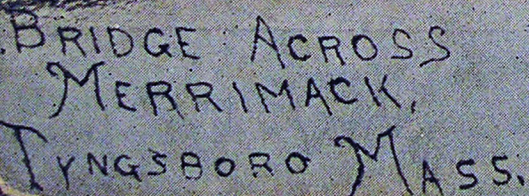 BRIDGE ACROSS
MERRIMACK,
TYNGSBORO MASS.